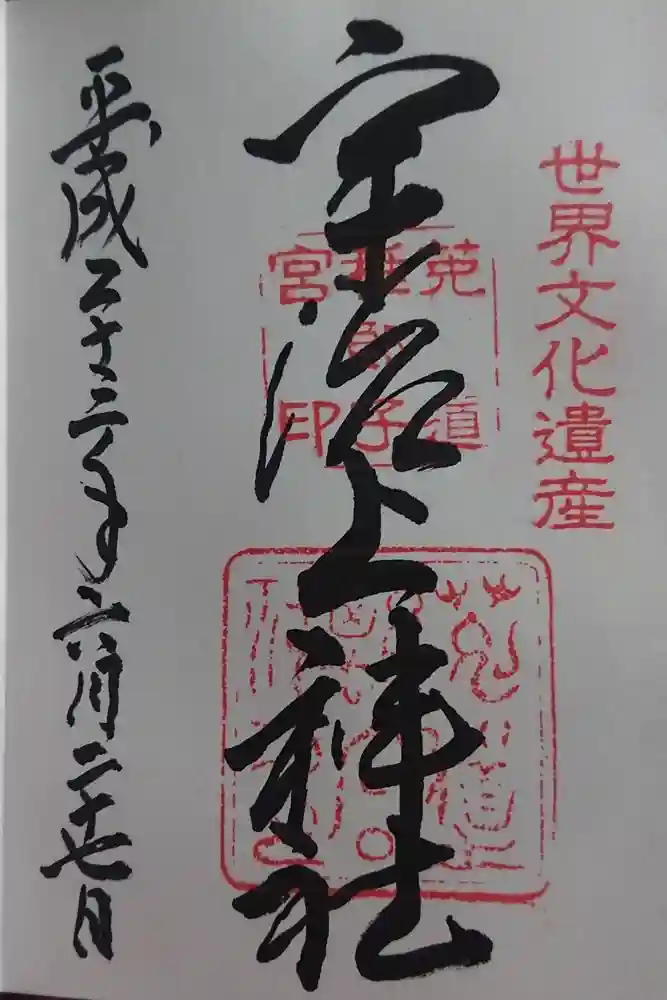 世界文化遺産
菟道
稚郎子
宮印
宇治上神社
平成二十三年六月二十七日